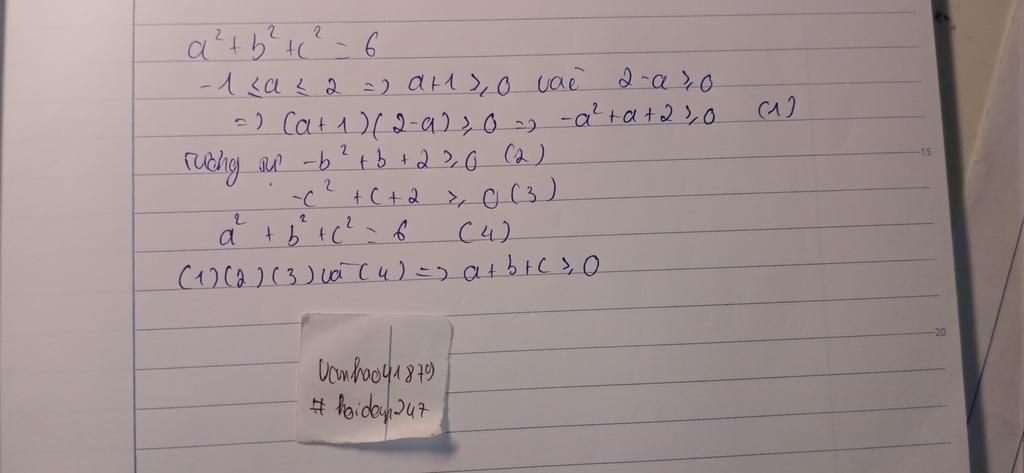 a² + b² + c² = 6
-1 ≤ a ≤ 2 => a+1 ≥ 0 và 2-a ≥ 0
=> (a+1)(2-a) ≥ 0 => -a²+a+2 ≥ 0 (1)
-b²+b+2 ≥ 0 (2)
-c² + c + 2 ≥ 0 (3)
a² + b² + c² = 6 (4)
(1)(2)(3) và (4) => a+b+c ≥ 0
15
20
vanhao41879
# hoidap247